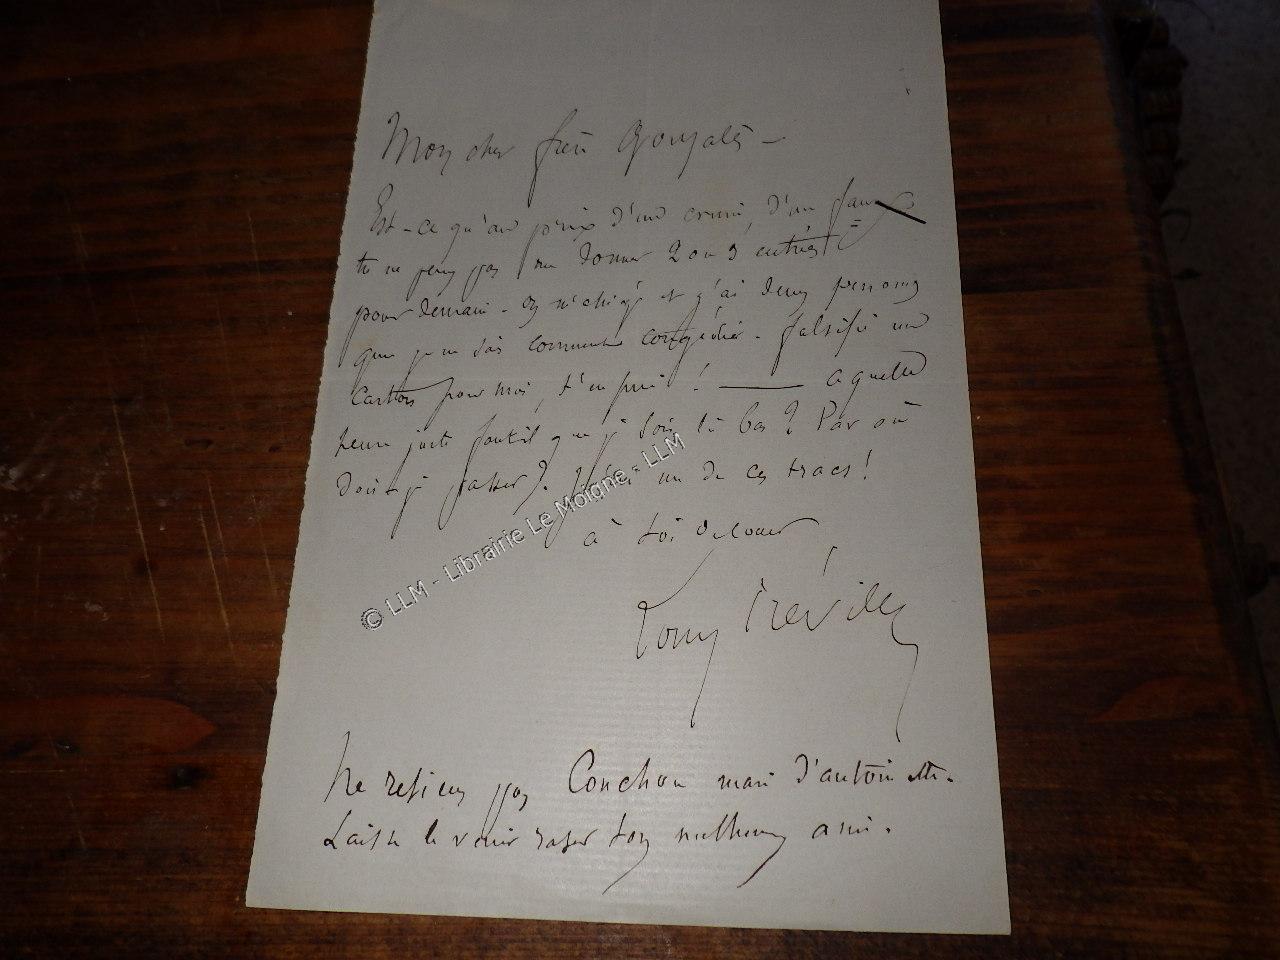 Mon cher frère Gonzalès –
Est-ce qu'au prix d'un crime, d'un faux
tu ne peux pas me donner 2 ou 3 entrées
pour demain. On et j'ai deux personnes
que je ne sais comment congédier. falsifie un
carton pour moi, t'en prie ! —— a quelle
heure juste faut il que je sois là bas ? Par où
dois-je passer ? J'ai un de ces tracs !
à toi de coeur
Tony Révillon
Ne retiens pas Conchon mari d'antoinette.
Laisse le venir raser ton malheureux ami.
© LLM - Librairie Le Moigne - LLM